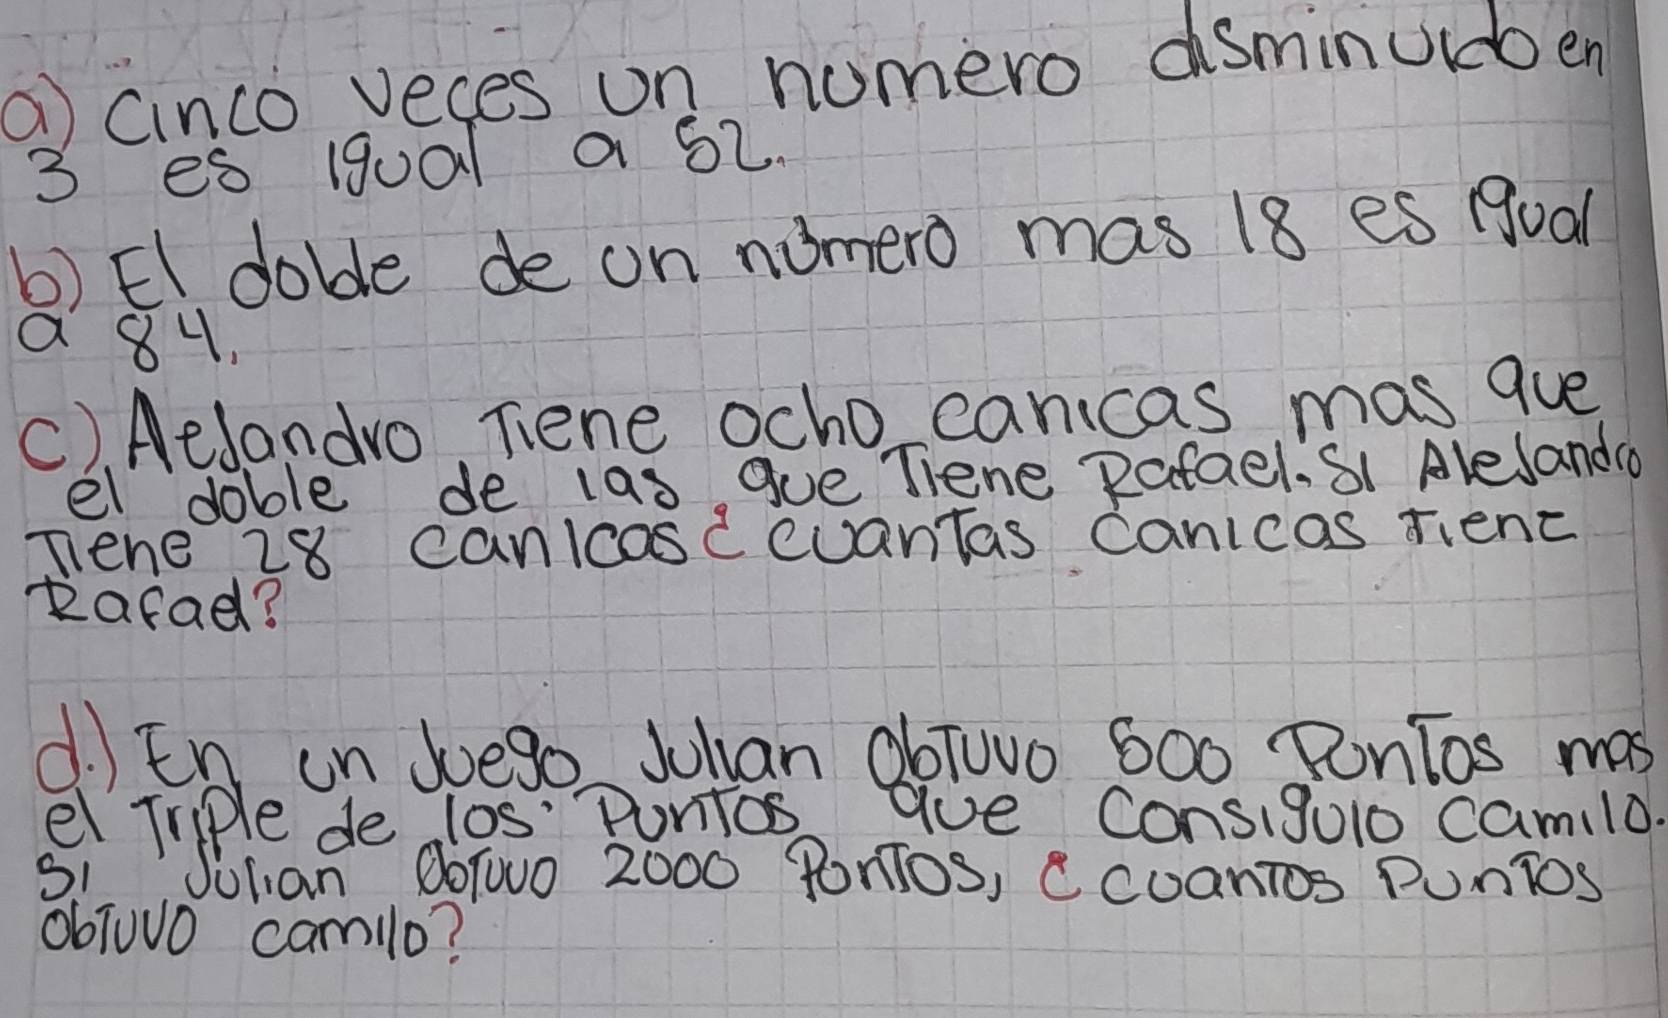 a) cinco veces un numero disminuido en
3 es igual a 52.
b) El dolde de un número mas 18 es igual
a 84.
c) Alejandro Tiene ocho canicas mas que
el doble de las que Tiene Rafael. Si Alejandro
Tiene 28 canicas ¿cuanTas canicas Tiene
Rafael?
d.) En un Juego Julian obTuvo 500 PunTos mas
el Triple de los PunTos que consiguio camilo.
Si Julian obTuvo 2000 PunTos, ¿cuanTos PunTos
obTuvo camilo?